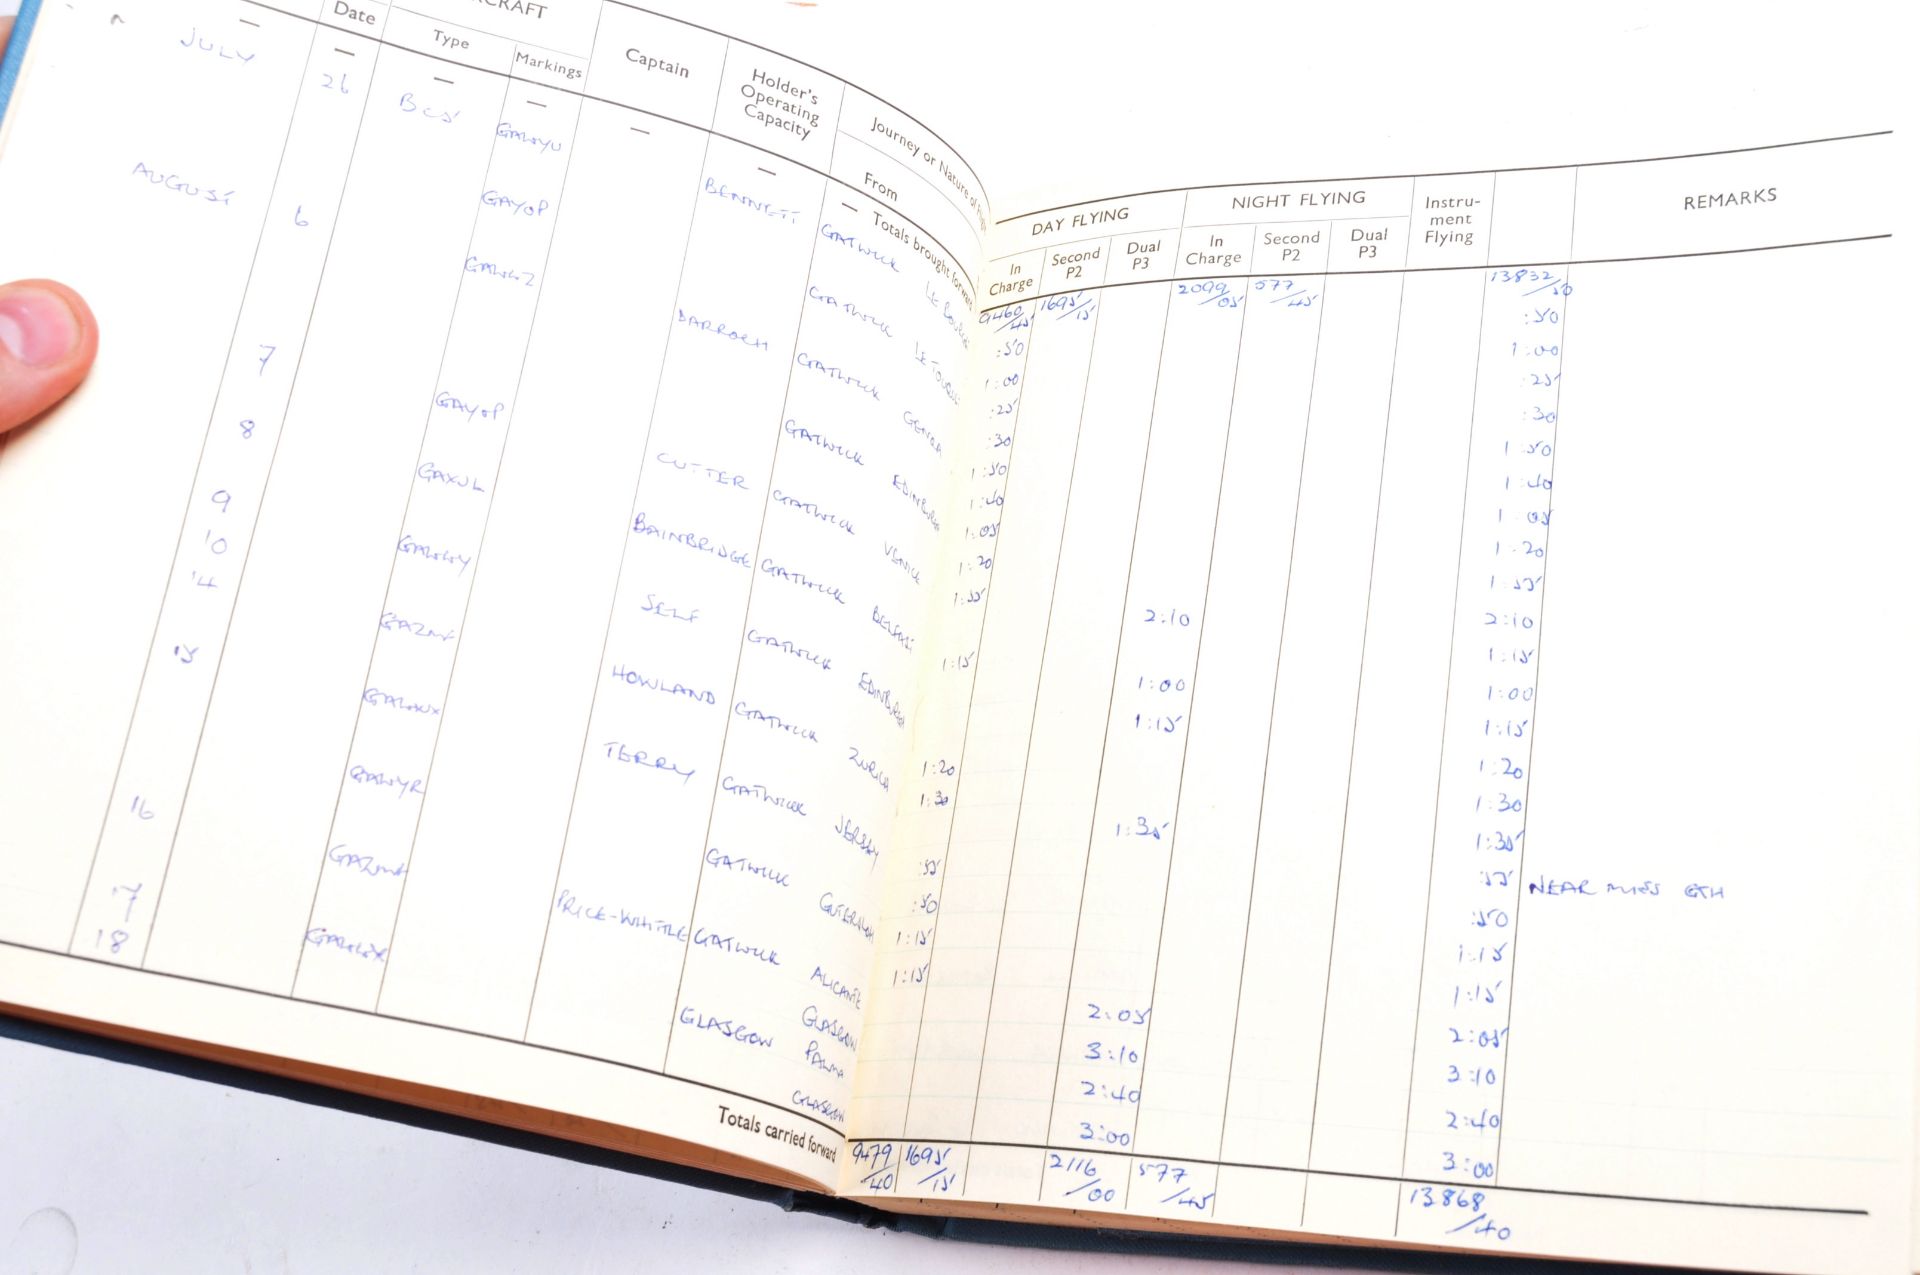 Date
Type
Markings
Captain
Holder's
Operating
Capacity
Journey or Nature of Flight
From
Totals brought forward
JULY
26
GAWYU
AUGUST
6
GAYOP
BENNETT
GATWICK
GATWICK LE TOUQUET
7
DARROCH
GATWICK GENOA
8
GAYOP
GATWICK EDINBURGH
9
GAXUL
CUTTER
GATWICK VENICE
10
BAINBRIDGE
GATWICK BELFAST
14
SELF
GATWICK EDINBURGH
15
HOWLAND
GATWICK ZURICH
GAWYR
TERRY
GATWICK JERSEY
16
GATWICK GUTERSLOH
17
PRICE-WHITTLE
GATWICK ALICANTE
18
GLASGOW
GLASGOW PALMA
GLASGOW
Totals carried forward
DAY FLYING
NIGHT FLYING
Instru-
ment
Flying
REMARKS
In
Charge
Second
P2
Dual
P3
In
Charge
Second
P2
Dual
P3
9460/45 1695/15 2099/05 577/45 13832/50
:50 :50
1:00 1:00
:25 :25
:30 :30
1:50 1:50
1:40 1:40
1:05 1:05
1:20 1:20
1:55 1:55
2:10 2:10
1:15 1:15
1:00 1:00
1:15 1:15
1:20 1:20
1:30 1:30
1:35 1:35
:55 :55 NEAR MISS GTH
:50 :50
1:15 1:15
1:15 1:15
2:05 2:05
3:10 3:10
2:40 2:40
3:00 3:00
9479/40 1695/15 2116/00 577/45 13868/40